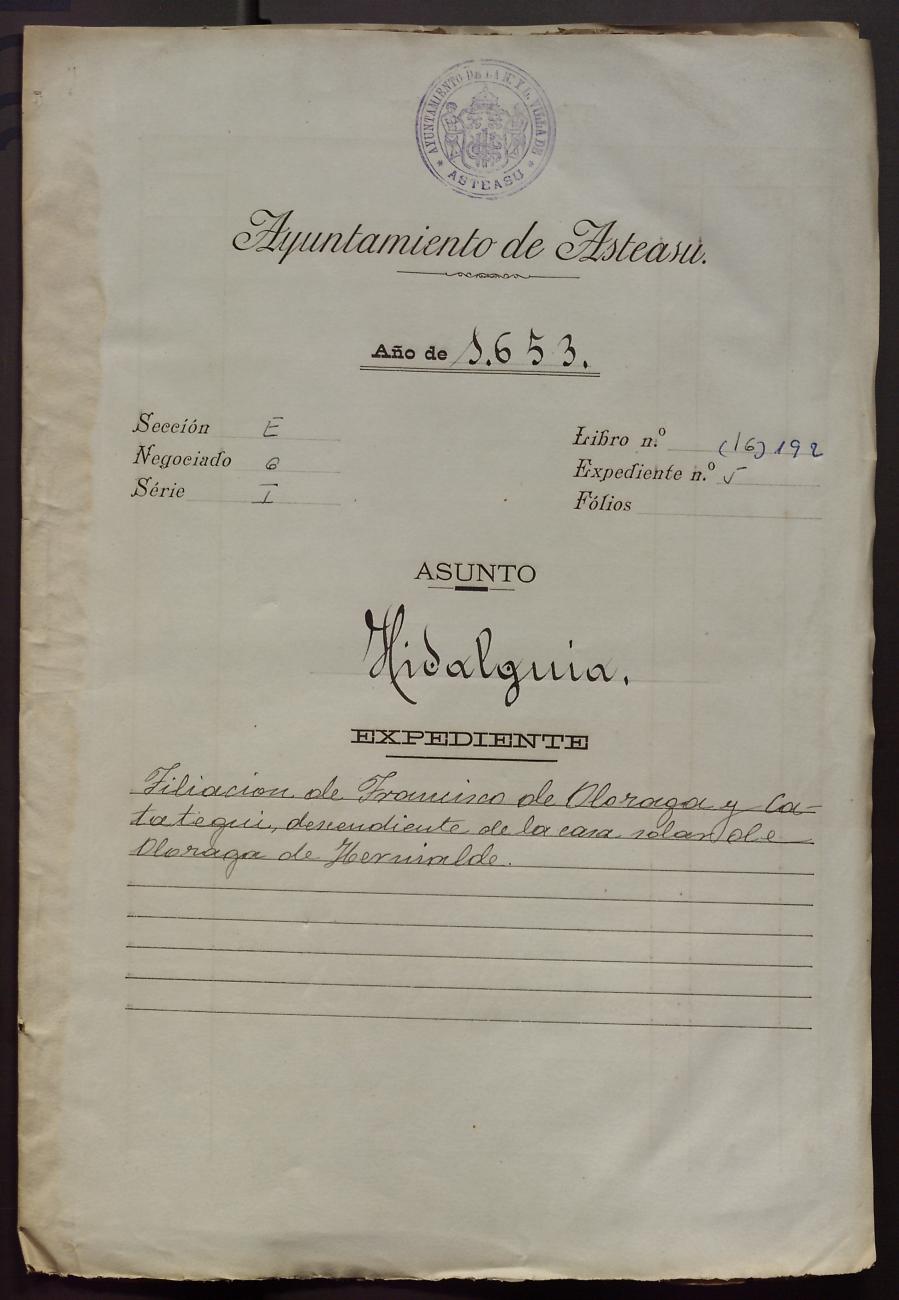 AYUNTAMIENTO DE LA N. Y L. VILLA DE
* ASTEASU *
Ayuntamiento de Asteasu.
Año de 1.653.
Sección E
Negociado 6
Série I
Libro n.º (16) 192
Expediente n.º 5
Fólios
ASUNTO
Hidalguia.
EXPEDIENTE
Filiacion de Francisco de Oloraga y Ca-
tategui, descendiente de la casa solar de
Oloraga de Hernialde.